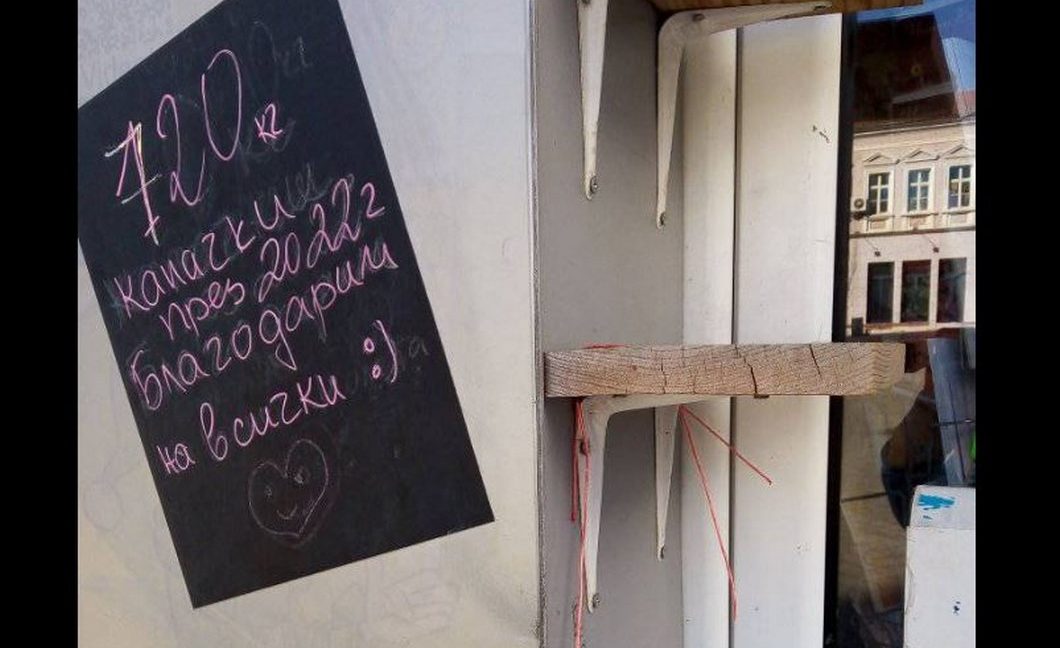 120 кг
капачки
през 2022г
благодарим
на всички :)